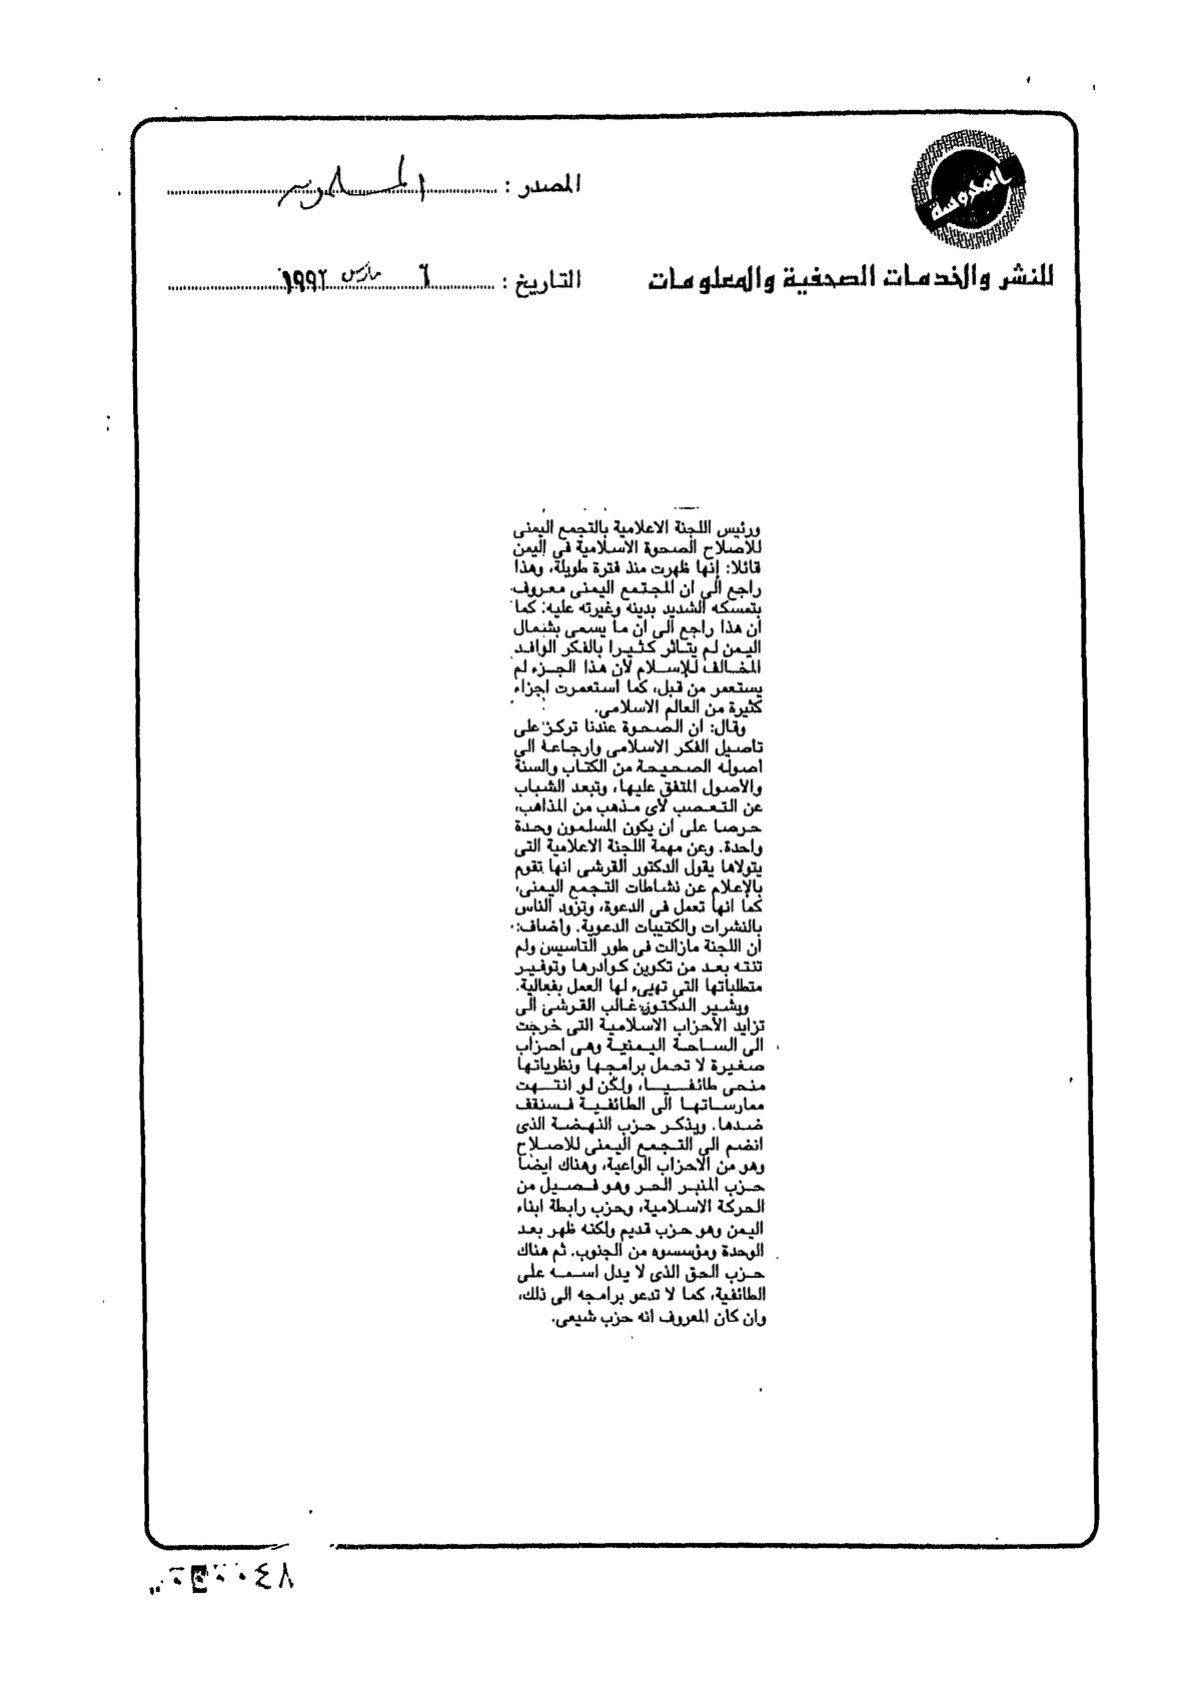 المحروسة
للنشر والخدمات الصحفية والمعلومات
المصدر : المسلمون
التاريخ : ٦ مارس ١٩٩٢
ورئيس اللجنة الاعلامية بالتجمع اليمنى
للاصلاح الصحوة الاسلامية فى اليمن
قائلا: إنها ظهرت منذ فترة طويلة، وهذا
راجع الى ان المجتمع اليمنى معروف
بتمسكه الشديد بدينه وغيرته عليه: كما
ان هذا راجع الى ان ما يسمى بشمال
اليمن لم يتاثر كثيرا بالفكر الوافد
المخالف للإسلام لأن هذا الجزء لم
يستعمر من قبل، كما استعمرت اجزاء
كثيرة من العالم الاسلامى.
وقال: ان الصحوة عندنا تركز على
تاصيل الفكر الاسلامى وارجاعة الى
اصوله الصحيحة من الكتاب والسنة
والاصول المتفق عليها، وتبعد الشباب
عن التعصب لأى مذهب من المذاهب،
حرصا على ان يكون المسلمون وحدة
واحدة. وعن مهمة اللجنة الاعلامية التى
يتولاها يقول الدكتور القرشى انها تقوم
بالإعلام عن نشاطات التجمع اليمنى،
كما انها تعمل فى الدعوة، وتزود الناس
بالنشرات والكتيبات الدعوية. واضاف:
ان اللجنة مازالت فى طور التاسيس ولم
تنته بعد من تكوين كوادرها وتوفير
متطلباتها التى تهيىء لها العمل بفعالية.
ويشير الدكتور غالب القرشى الى
تزايد الأحزاب الاسلامية التى خرجت
الى الساحة اليمنية وهى احزاب
صغيرة لا تحمل برامجها ونظرياتها
منحى طائفيا، ولكن لو انتهت
ممارساتها الى الطائفية فسنقف
ضدها. ويذكر حزب النهضة الذى
انضم الى التجمع اليمنى للاصلاح
وهو من الأحزاب الواعية، وهناك ايضا
حزب المنبر الحر وهو فصيل من
الحركة الاسلامية، وحزب رابطة ابناء
اليمن وهو حزب قديم ولكنه ظهر بعد
الوحدة ومؤسسوه من الجنوب. ثم هناك
حزب الحق الذى لا يدل اسمه على
الطائفية، كما لا تدعو برامجه الى ذلك،
وان كان المعروف انه حزب شيعى.